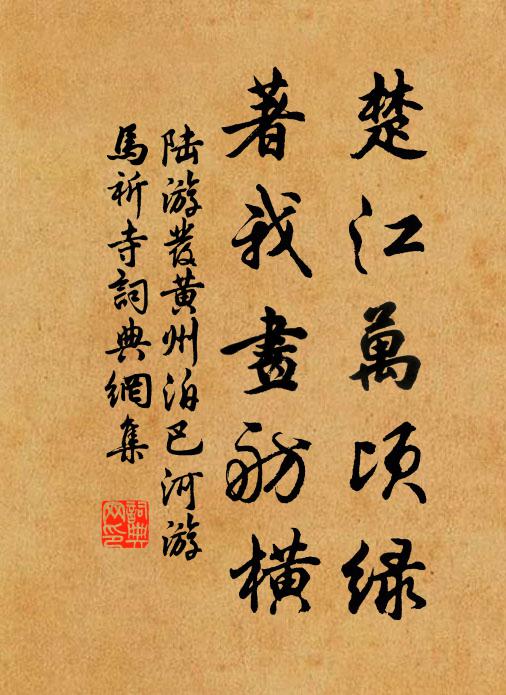 楚江萬頃綠
著我畫舫橫
陆游發黄州泊巴河游
馬祈寺詞典網集
詞典网印